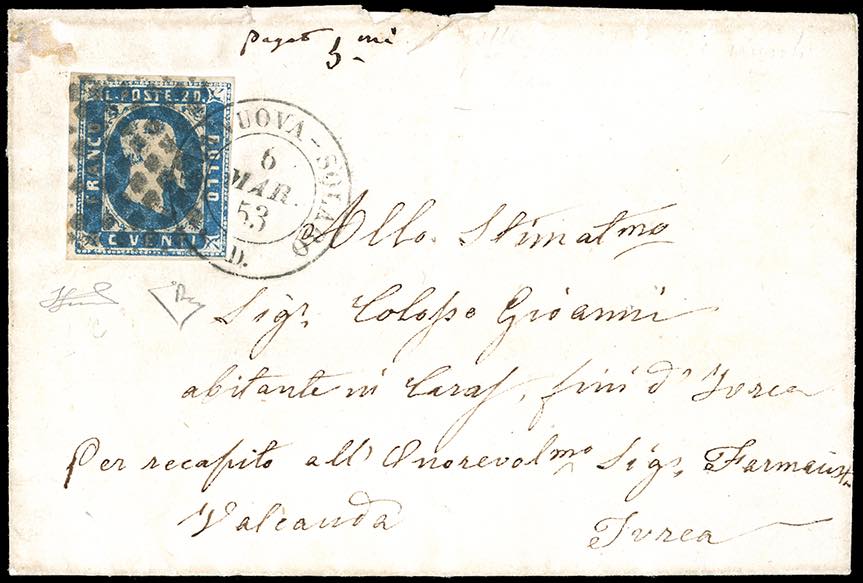 pagato 5 mi
C. POSTE 20.
FRANCO BOLLO
C. VENTI
NUOVA - SOLARO
6
MAR.
53
D.
Allo Stimatmo
Sigr. Gioanni
abitante in fini d' Ivrea
Per recapito all' Onorevolmo Sigr. Farmacista
Valeauda
Ivrea